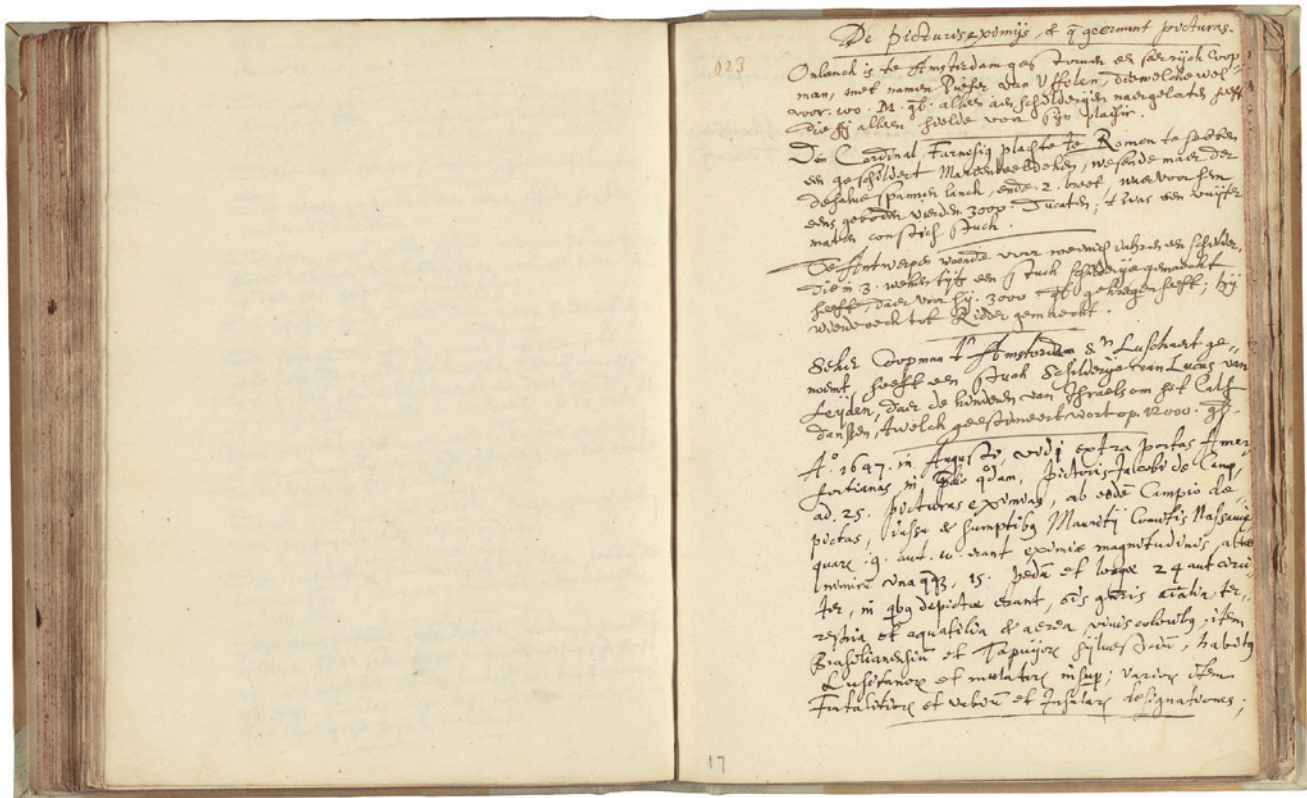 De picturis eximijs, et q̄ geerunt picturas.
023
Onlanck is te Amsterdam gestorven een seer rijck Coop-
man, met namen Pieter van Uffelen, diewelcke wel
voor. 100. M. gl. alleen aen schilderijen naergelaten heeft
die hij alleen hielde voor sijn plaisir.
Den Cardinal Farnesig plachte te Romen te hebben
een geschildert Marienbeeldeken, wesende maer der
dehalve spannen lanck, ende .2. breet, waervoor hem
eens geboden wierden 3000. Ducaten; t was een uuijter
maten constich stuck.
Te Antwerpen woonde voor weenich jahren een schilder,
die in 3. weken tijts een stuck schilderije gemaeckt
heeft, daer voor hij. 3000 gl. gekregen heeft; hij
wierde oock tot Ridder gemaeckt.
Seker Coopman t' Amsterdam Sr Luschaert ge-
noemt, heeft een stuck Schilderije van Lucas van
Leijden, daer de kinderen van Israels om het Calf
dansen, twelch geestimeert wort op 12000. gl.
Ao. 1647. in Augusto, vidi extra portas Amer
fortianas in quodam, Pictoris Jacobi de Camp,
ad. 25. picturas eximias, ab eodē Campio de-
pictas, jussu et sumptibq Mauritij Comitis Nassauię
quarꝝ .9. aut. 10. erant eximię magnitudinis, altę
nimirū unaqqȝ. 15. pedū et longę 24 aut circi
ter, in qbq depictę erant, oīs gn̄ris aīalia, ter-
restria et aquatilia et aerea vivis coloribq; item
Brasiliansiū et Tapuijorꝝ sijlvestriū, habitq
Lusitanorꝝ et mulatorꝝ insup; variorꝝ item
Fortalitiorꝝ et urbiū et Insularꝝ designationes;
17